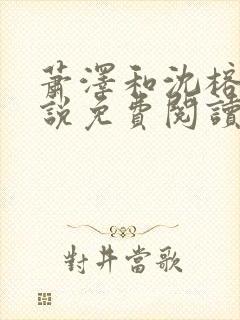 蕭澤和沈榕
說免費閱讀
對井當歌